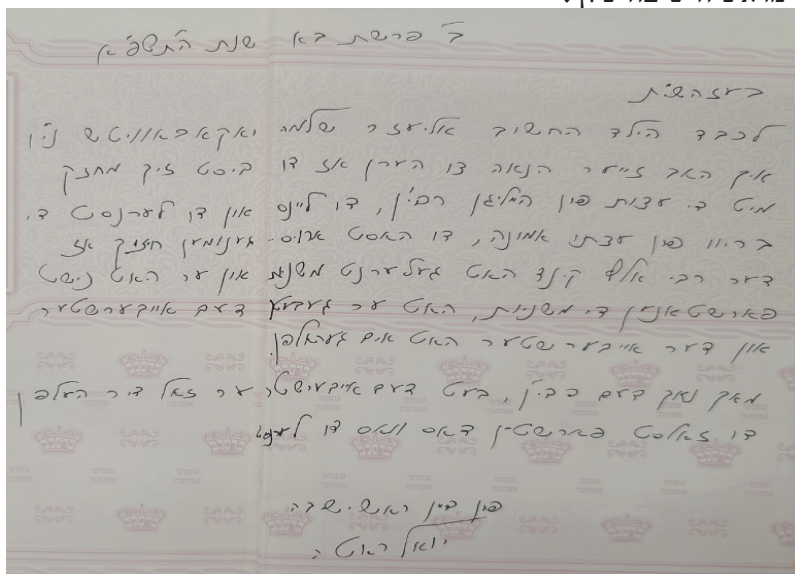 ב' פרשת בא שנת ה'תשפ"א
בעזהשי"ת
לכבד הילד החשוב אליעזר שלמה יאקאבאוויטש ני"ו
איך האב זייער הנאה צו הערן אז דו ביסט זיך מחזק
מיט די עצות פון הייליגן רבי'ן, דו ליינס און דו לערנסט די
בריוו פון עצתו אמונה, דו האסט ארויס-גענומען חיזוק אז
דער רבי אלס קינד האט געלערנט משניות און ער האט נישט
פארשטאנען די משניות, האט ער געבעטן דעם אייבערשטער
און דער אייבערשטער האט אים געהאלפן.
מאך נאך דעם רבי'ן, בעט דעם אייבערשטער ער זאל דיר העלפן
דו זאלסט פארשטיין דאס וואס דו לערנסט
פון דיין ראש ישיבה
יואל ראטה